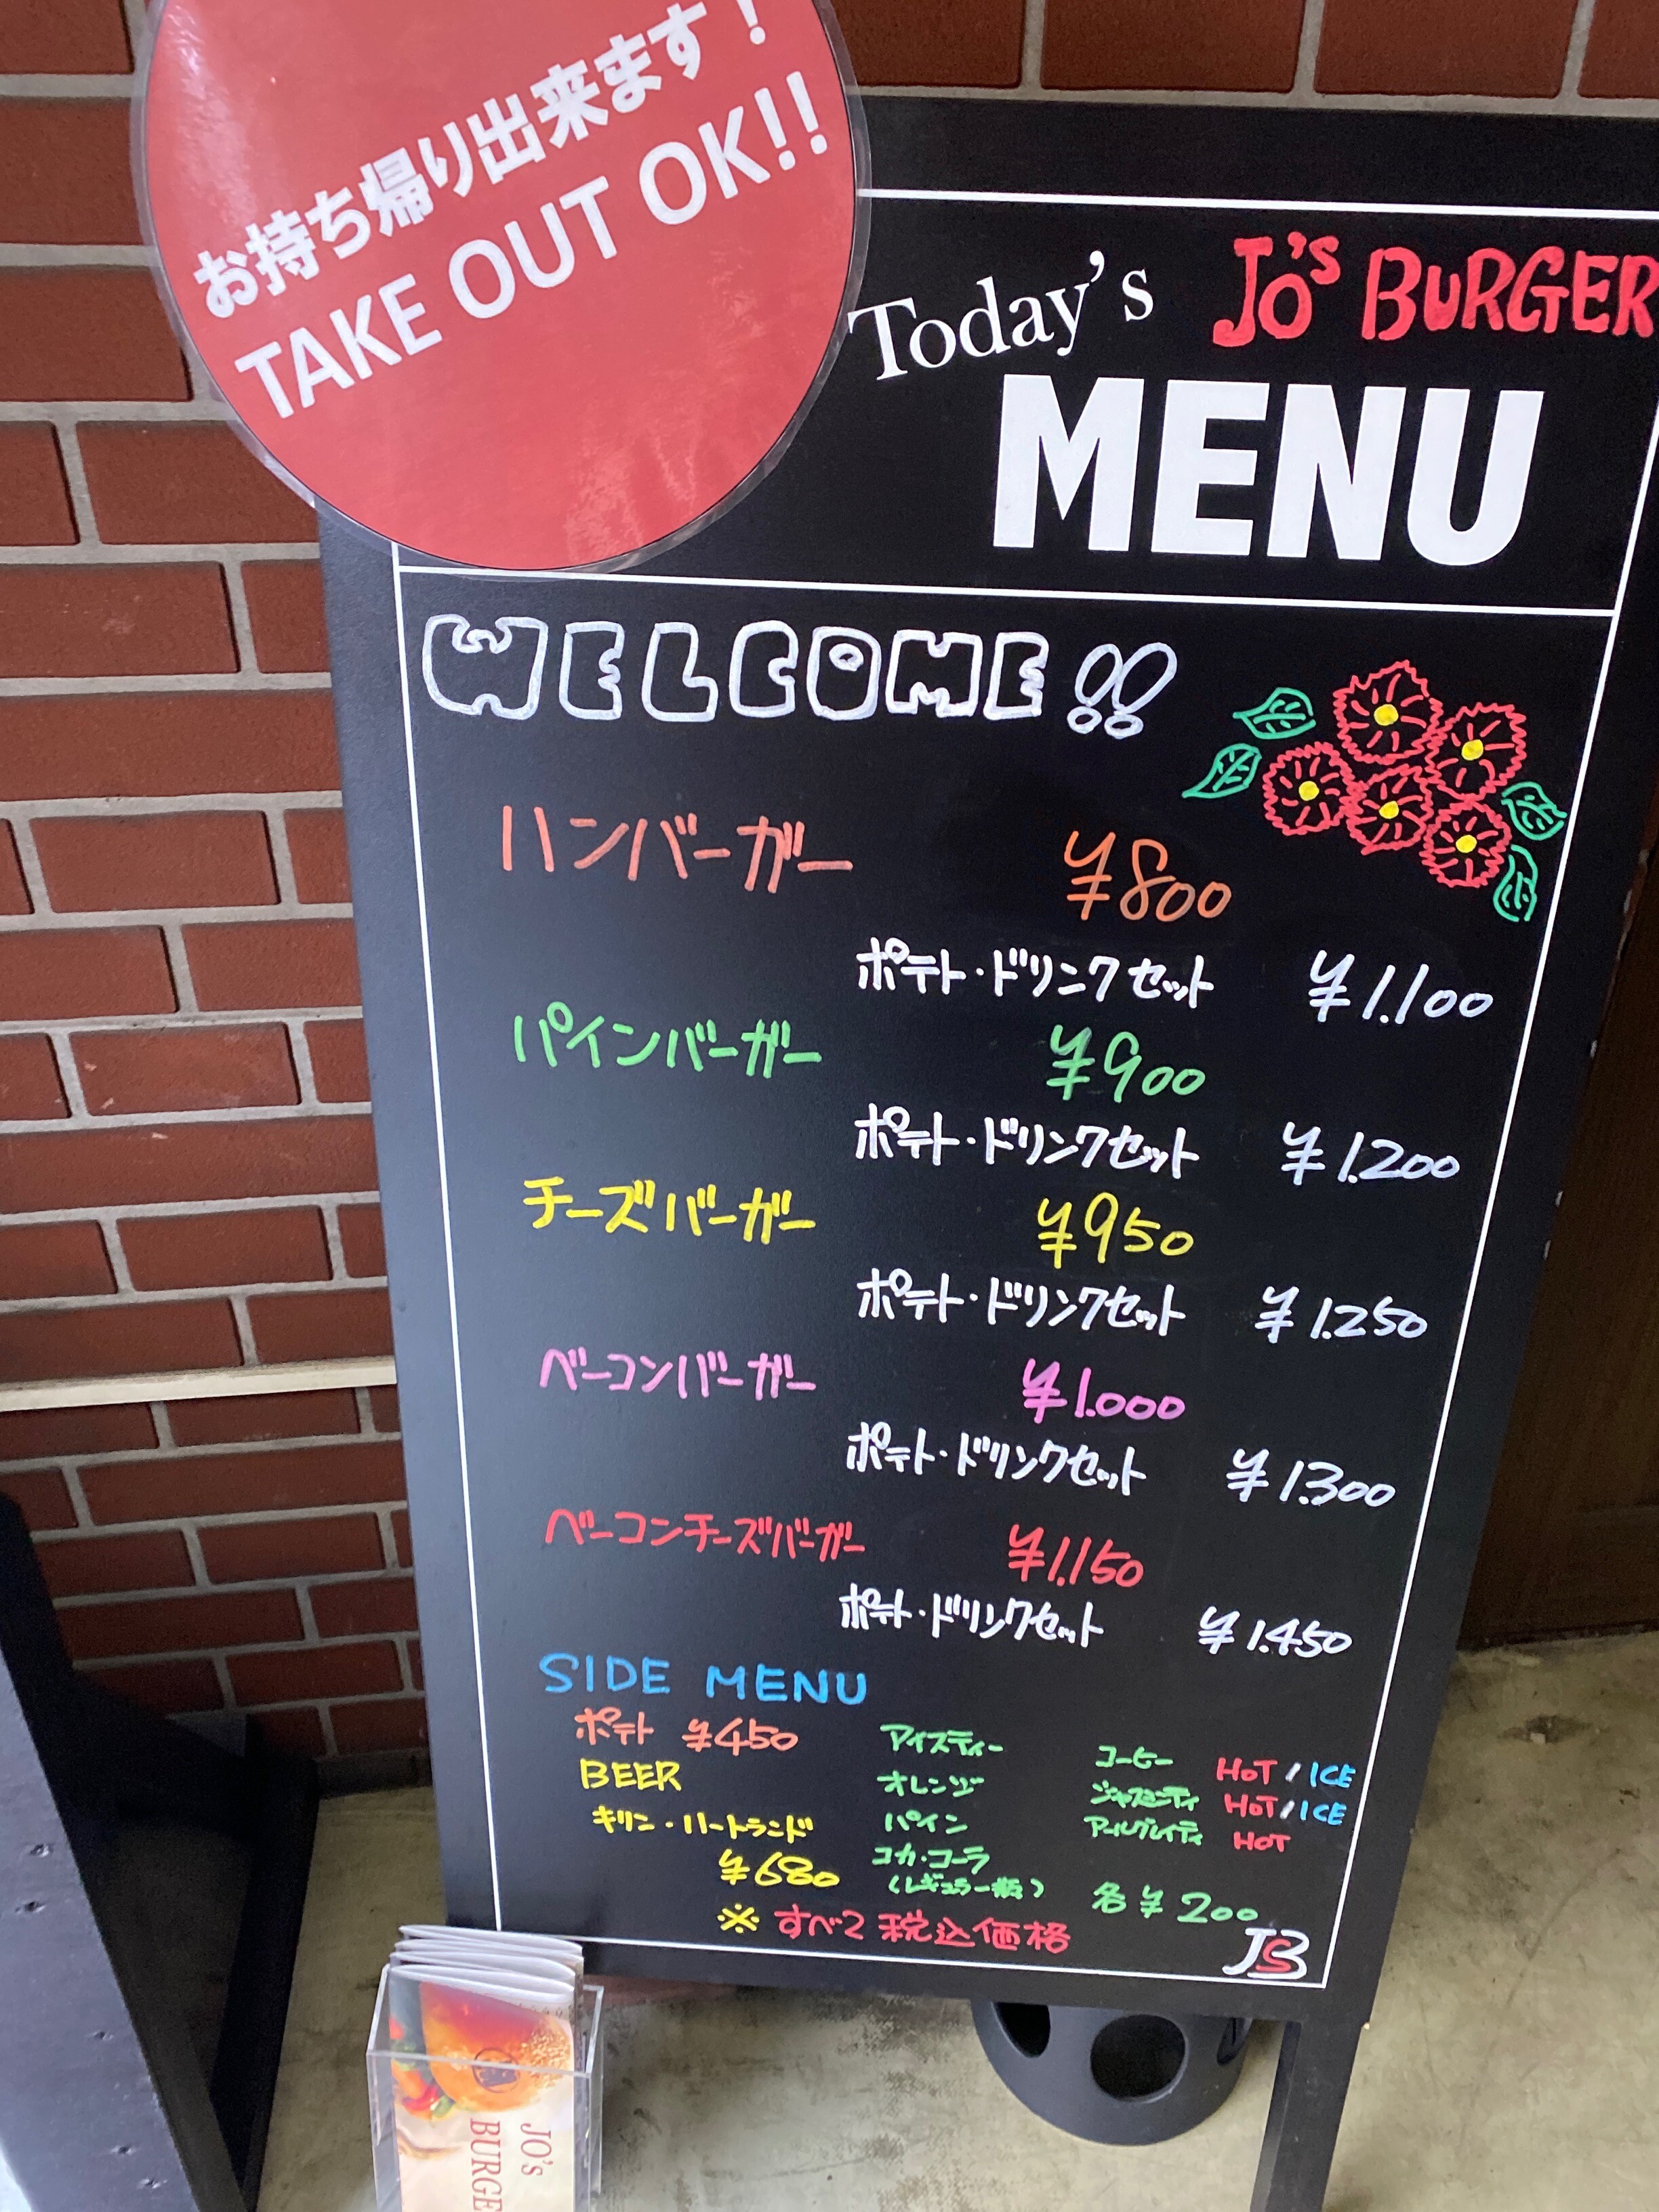 お持ち帰り出来ます！
TAKE OUT OK!!
Today's JO'S BURGER
MENU
WELCOME!!
ハンバーガー ¥800
ポテト・ドリンクセット ¥1.100
パインバーガー ¥900
ポテト・ドリンクセット ¥1.200
チーズバーガー ¥950
ポテト・ドリンクセット ¥1.250
ベーコンバーガー ¥1.000
ポテト・ドリンクセット ¥1.300
ベーコンチーズバーガー ¥1.150
ポテト・ドリンクセット ¥1.450
SIDE MENU
ポテト ¥450
BEER
キリン・ハートランド
¥680
アイスティー
オレンジ
パイン
コカ・コーラ
(レギュラー瓶)
コーヒー HOT/ICE
ジャスミンティ HOT/ICE
アールグレイティ HOT
各¥200
※すべて税込価格
JSB
JO's
BURGE